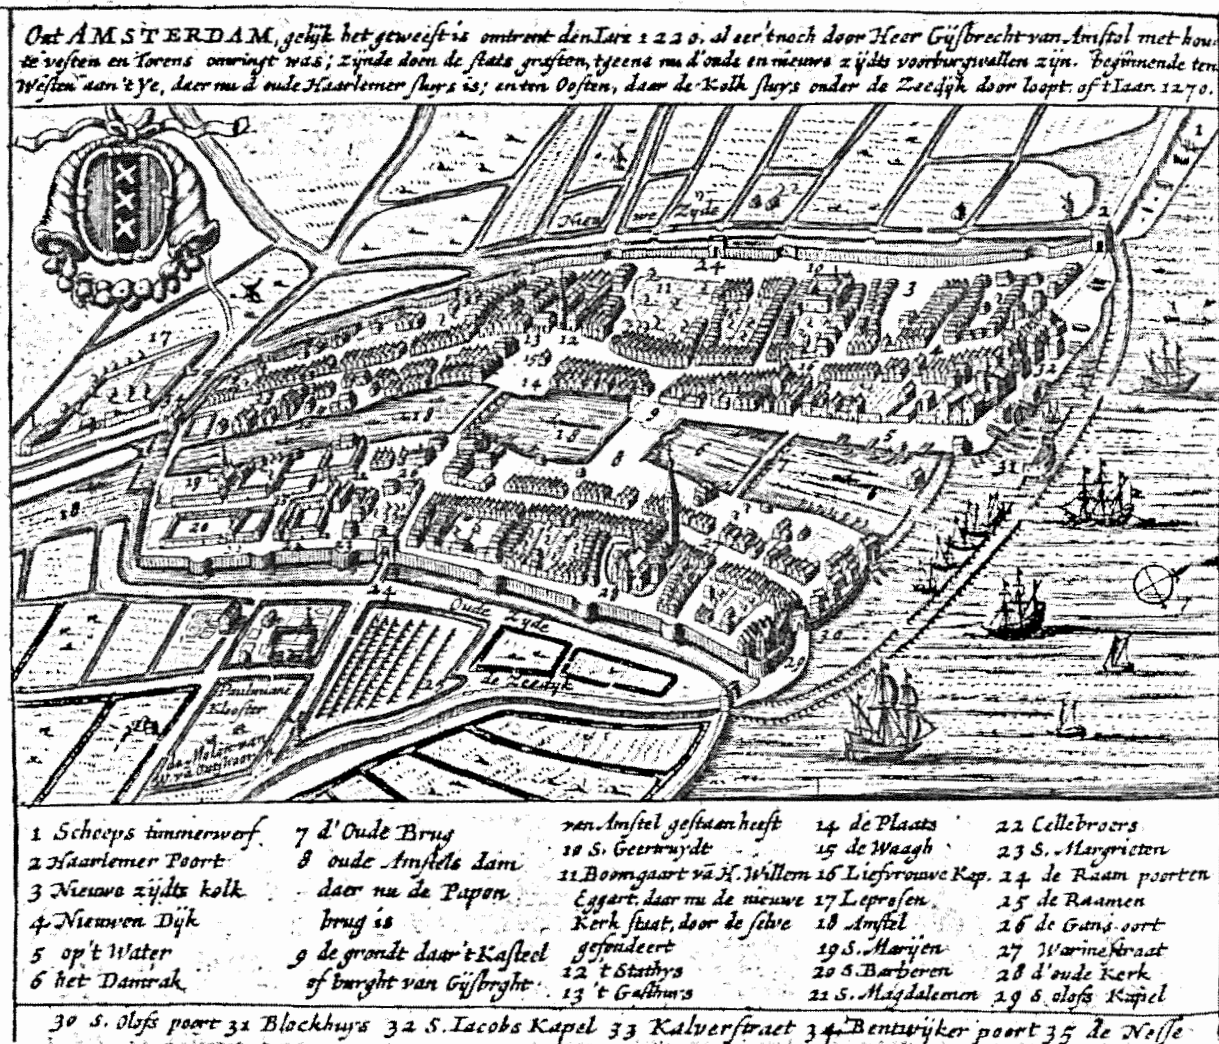 Out AMSTERDAM, gelijk het geweest is omtrent den Iare 1220. al eer 't noch door Heer Gijsbrecht van Amstel met hou
te vesten en Torens omringt was; zijnde doen de stats graften, tgeene nu d'oude en nieuwe zijdts voorburgwallen zijn. Beginnende ten
Westen aan 't Ye, daer nu d oude Haarlemer sluys is; en ten Oosten, daar de Kolk sluys onder de Zeedijk door loopt. of t Iaar. 1270.
Nieuwe Zyde
Oude Zyde
de Zeedyk
Pauliniane
Klooster
de Molen van
1 Scheeps timmerwerf
2 Haarlemer Poort
3 Nieuwe zijdts kolk
4 Nieuwen Dijk
5 op't Water
6 het Damrak
7 d'Oude Brug
8 oude Amstels dam
daer nu de Papen
brug is
9 de grondt daar't Kasteel
of burght van Gijsbrght
van Amstel gestaan heeft
10 S. Geertruydt
11 Boomgaart vā H. Willem
Eggart, daar nu de nieuwe
Kerk staat, door de selve
gefondeert
12 't Stathys
13 't Gasthuis
14 de Plaats
15 de Waagh
16 Liefvrouwe Kap.
17 Leprosen
18 Amstel
19 S. Marijen
20 S. Barberen
21 S. Magdalenen
22 Cellebroers
23 S. Margrieten
24 de Raam poorten
25 de Raamen
26 de Gans oort
27 Warmestraat
28 d'oude Kerk
29 S olofs Kapel
30 S. Olofs poort 31 Blockhuys 32 S. Iacobs Kapel 33 Kalverstraet 34 Bentwijker poort 35 de Nesse